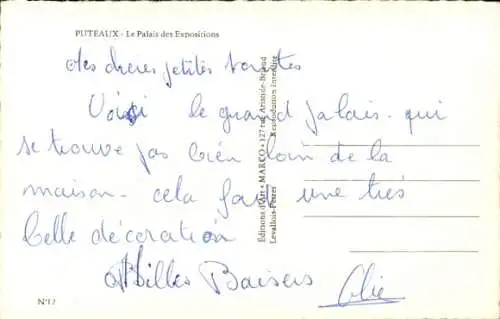 PUTEAUX - Le Palais des Expositions
des cheres petites
Voici le grand palais. qui
se trouve pas bien loin de la
maison. cela fait une très
belle décoration
Milles Baisers
Editions d'Art • MARCO • 127 rue Aristide-Briand
Levallois-Perret
Reproduction Interdite
N°12